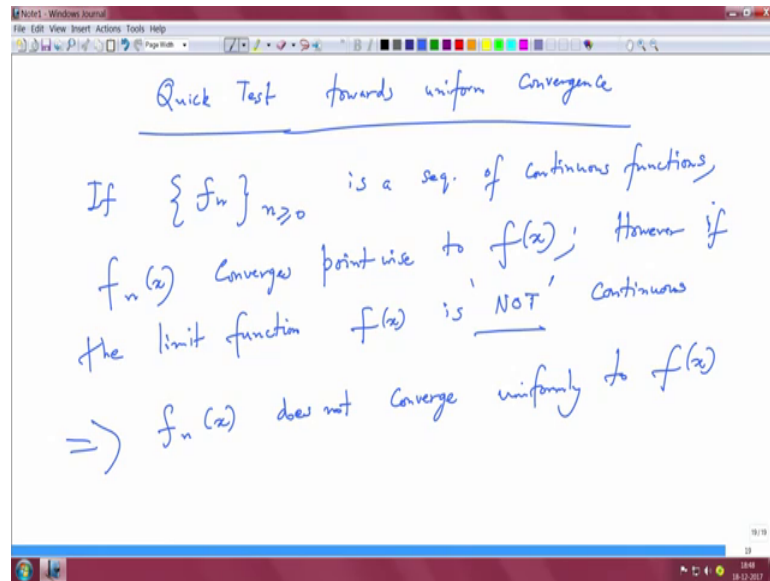 Note1 - Windows Journal
File Edit View Insert Actions Tools Help
Page Width
B I
Quick Test towards uniform convergence
If { fn } n≥0 is a seq. of continuous functions,
fn(x) converges pointwise to f(x); However if
the limit function f(x) is 'NOT' continuous
=> fn(x) does not converge uniformly to f(x)
19/19
19
18:48
18-12-2017